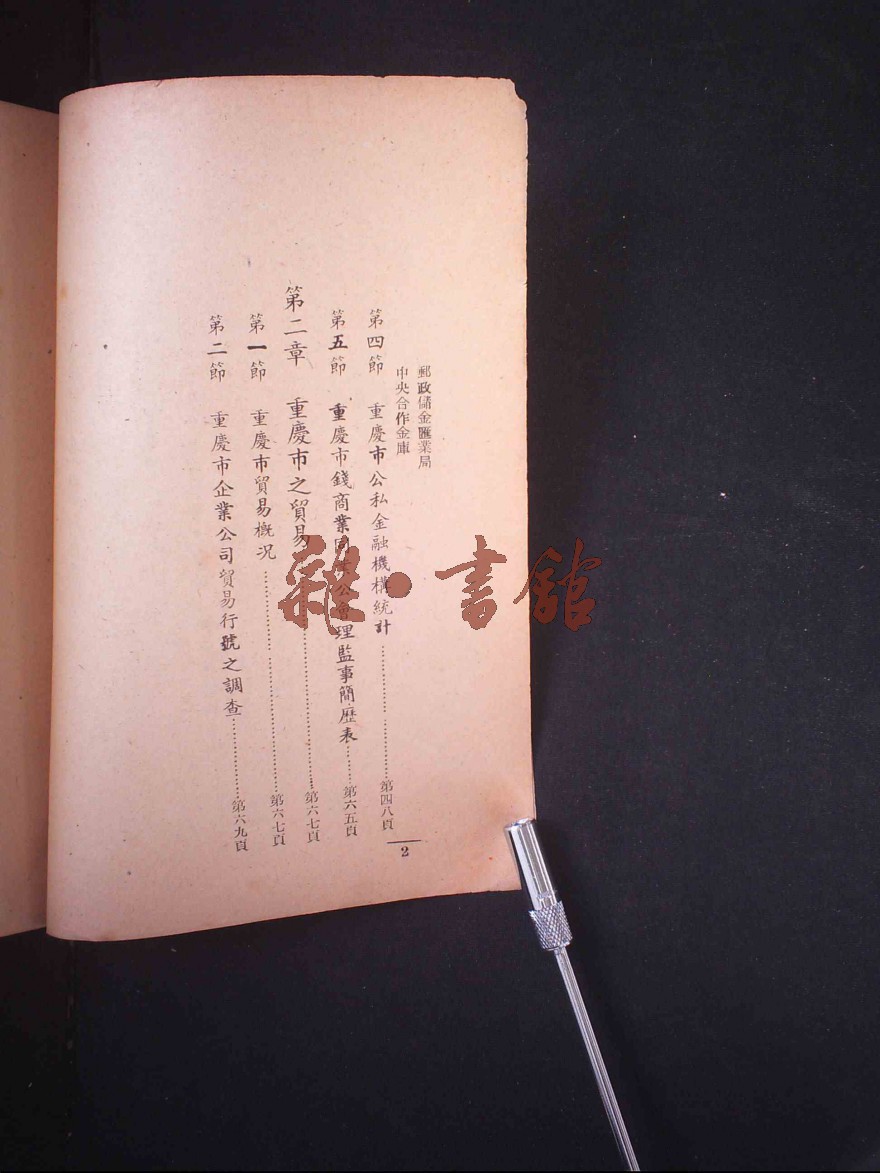 郵政儲金匯業局
中央合作金庫
第四節 重慶市公私金融機構統計………………第四八頁
第五節 重慶市錢商業同業公會理監事簡歷表……第六五頁
第二章 重慶市之貿易………………………第六七頁
第一節 重慶市貿易概況………………………第六七頁
第二節 重慶市企業公司貿易行號之調查…………第六九頁
2
雜·書館